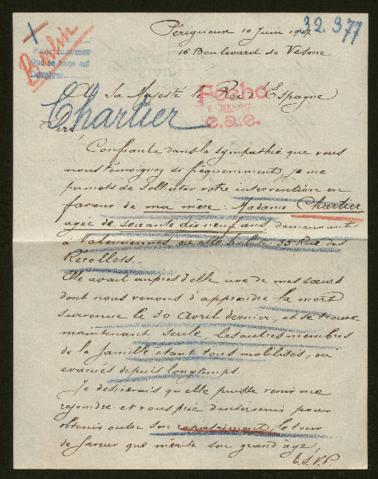 Périgueux 10 Juin 1917
16 Boulevard de Vésone
32.977
Berlin
A sa Majesté le Roi d'Espagne
Fecho
c.a.e.
Chartier
Sire
Confiante dans la sympathie que vous
nous témoignez si fréquemment, je me
permets de solliciter votre intervention en
faveur de ma mère: Madame Chartier
agée de soixante dix neuf ans, demeurant
à Valenciennes, où elle habite 35 Rue des
Récollets.
Elle avait auprès d'elle une de mes sœurs
dont nous venons d'apprendre la mort
survenue le 30 Avril dernier, et se trouve
maintenant seule, les autres membres
de la famille étant tous mobilisés, ou
évacués depuis longtemps.
Je désirerais qu'elle puisse venir me
rejoindre et vous prie d'intervenir pour
obtenir outre son rapatriement le tour
de faveur que mérite son grand âge,
T.S.V.P.